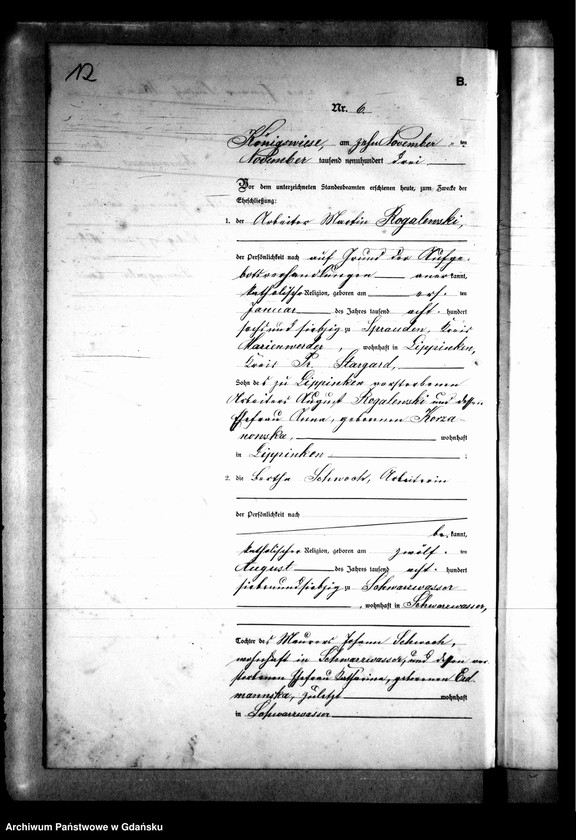 12
B.
Nr. 6.
Königswiese, am zehn November ten
November tausend neunhundert drei
Vor dem unterzeichneten Standesbeamten erschienen heute, zum Zwecke der
Eheschließung:
1. der Arbeiter Martin Rogalewski,
der Persönlichkeit nach auf Grund der Aufge-
botsverhandlungen anerkannt,
katholischer Religion, geboren am ersten
Januar des Jahres tausend acht hundert
sechsundsiebzig zu Sprauden, Kreis
Marienwerder, wohnhaft in Lippinken,
Kreis Pr. Stargard,
Sohn des zu Lippinken verstorbenen
Arbeiters August Rogalewski und dessen
Ehefrau Anna, geborenen Korza-
nowska, wohnhaft
in Lippinken ;
2. die Bertha Schwoch, Arbeiterin
der Persönlichkeit nach
bekannt,
katholischer Religion, geboren am zwölf ten
August des Jahres tausend acht hundert
siebenundsiebzig zu Schwarzwasser
, wohnhaft in Schwarzwasser,
Tochter des Maurers Johann Schwoch,
wohnhaft in Schwarzwasser, und dessen ver-
storbenen Ehefrau Katharina, geborenen Erd-
mannska, zuletzt wohnhaft
in Schwarzwasser
Archiwum Państwowe w Gdańsku